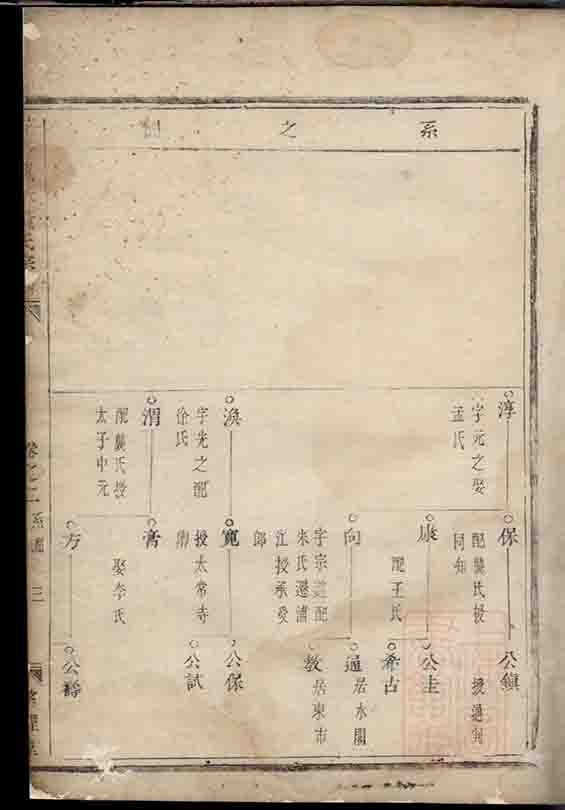 系之圖
淳
字元之娶
孟氏
渙
字先之配
徐氏
渭
配龔氏授
太子中元
保
配龔氏授
同知
康
配王氏
向
字宗道配
朱氏遷浦
江授承受
郎
寬
授太常寺
膏
娶李氏
方
公鎮
公圭
希古
通
居水閣
教
居東市
公保
公試
公壽
卷之二
系圖
三